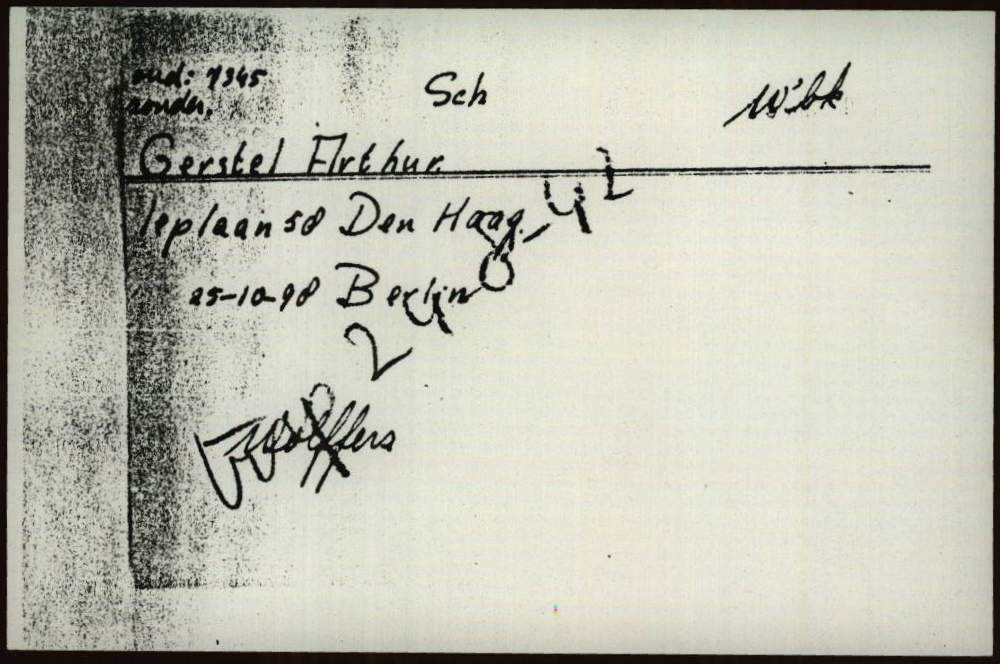 oud: 7345
zonder.
Sch
Wibk
Gerstel Arthur.
leplaan 58 Den Haag.
25-10-98 Berlin
24-8-42
Wolffers